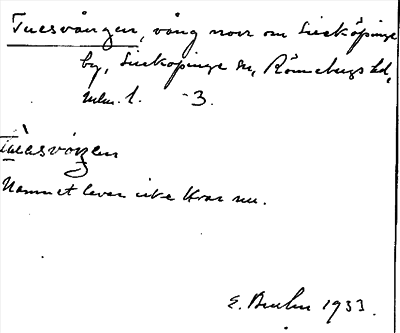 Tuesvången, vång norr om Sireköpinge
by, Sireköpinge sn, Rönnebergs hd,
Mlm. l. -3.
Tuèsvången
Namnet lever icke kvar nu.
E. Bruhn 1933.